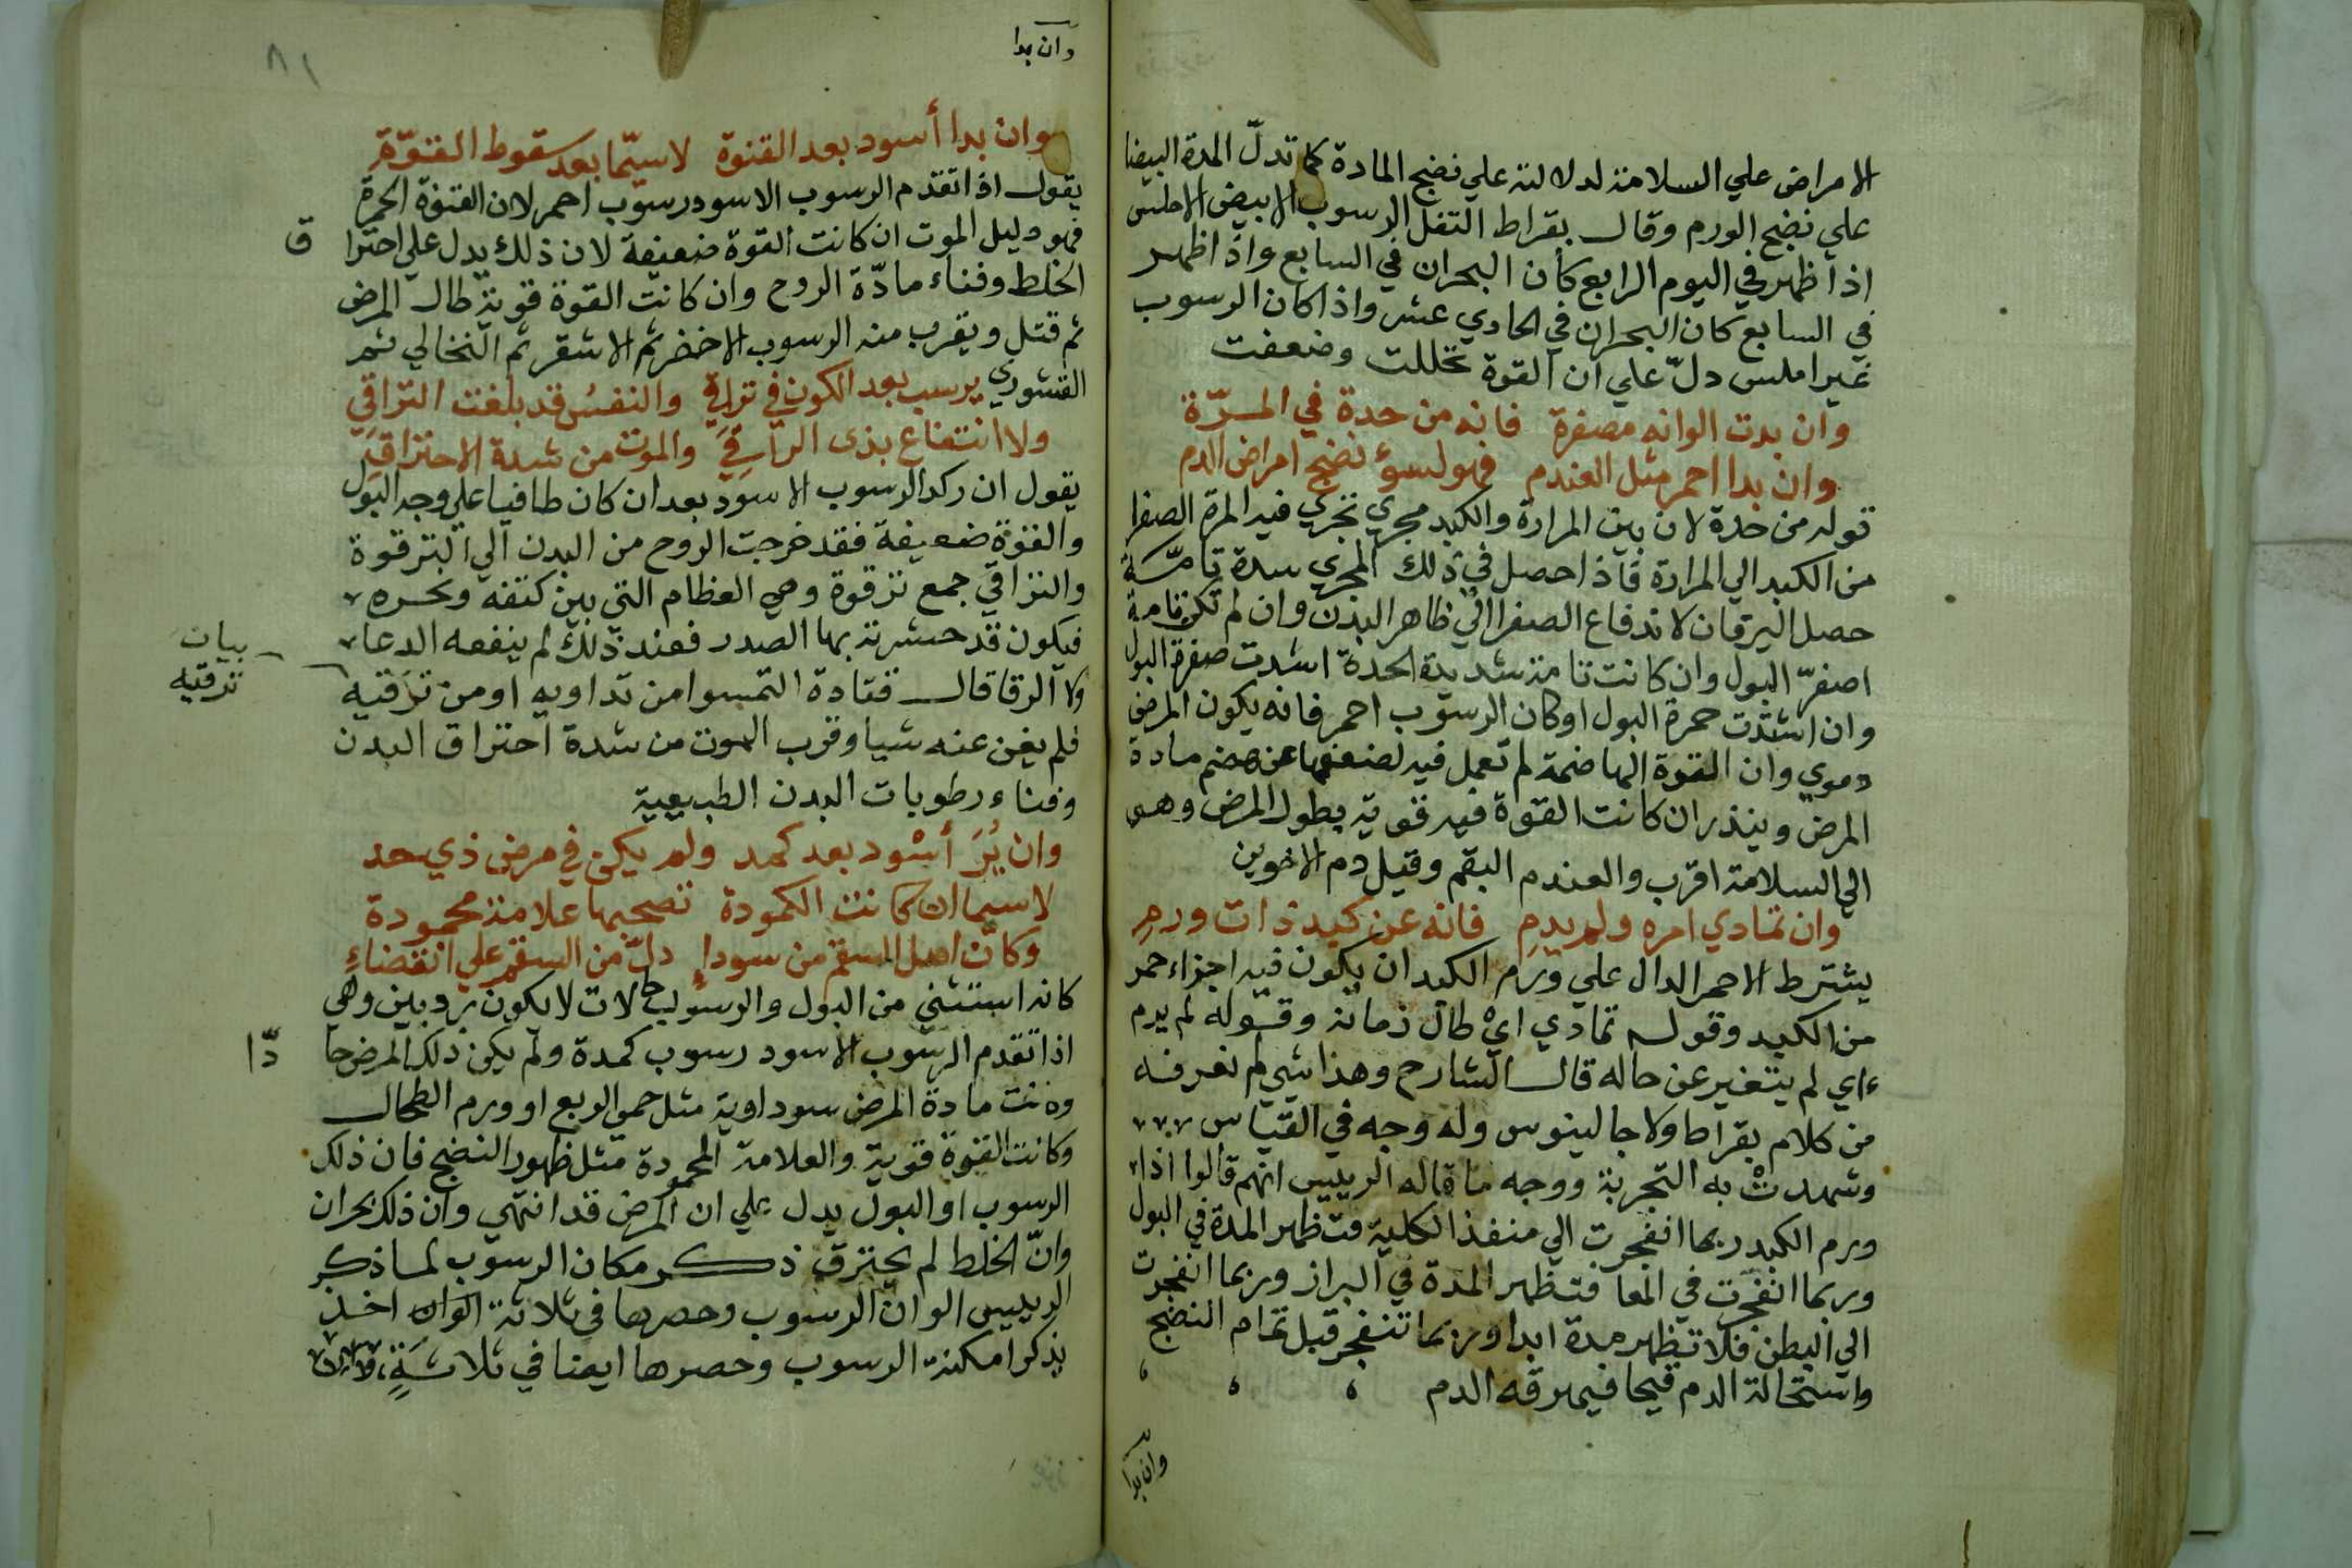 الامراض علي السلامة لدلالته علي نضج المادة كما تدلّ المدة البيضا
علي نضج الورم وقال بقراط الثفل الرسوب الابيض الاملس
اذا ظهر في اليوم الرابع كان البحران في السابع واذا ظهر
في السابع كان البحران في الحادي عشر واذا كان الرسوب
غير املس دلّ علي ان القوة تحللت وضعفت
وان بدت الوانه مصفرة فانه من حدة في المرّة
وان بدا احمر مثل العندم فهو لسوء نضج امراض الدم
قوله من حدة لان بين المرارة والكبد مجري تجري فيه المرة الصفرا
من الكبد الي المرارة فاذا حصل في ذلك المجري سدة تامّة
حصل اليرقان لاندفاع الصفرا الي ظاهر البدن وان لم تكن تامة
اصفرّ البول وان كانت تامة شديدة الحدة اشدت صفرة البول
وان اشدّت حمرة البول او كان الرسوب احمر فانه يكون المرض
دموي وان القوة الهاضمة لم تعمل فيه لضعفها عن هضم مادة
المرض وينذر ان كانت القوة فيه قوية بطول المرض وهي
الي السلامة اقرب والعندم البقم وقيل دم الاخوين
وان تمادي امره ولم يدم فانه عن كبد ذات ورم
يشترط الاحمر الدال علي ورم الكبد ان يكون فيه اجزاء حمر
من الكبد وقوله تمادي اي طال زمانه وقوله لم يدم
اي لم يتغير عن حاله قال الشارح وهذا شي لم نعرفه
من كلام بقراط ولا جالينوس وله وجه في القياس
وشهدت به التجربة ووجه ما قاله الرييس انهم قالوا اذا
ورم الكبد ربما انفجرت الي منفذ الكلية فتظهر المدة في البول
وربما انفجرت في المعا فتظهر المدة في البراز وربما انفجرت
الي البطن فلا تظهر مدة ابدا وربما تنفجر قبل تمام النضج
واستحالة الدم قيحا فيهرقه الدم
وان بدا
وان بدا
٨١
وان بدا أسود بعد القنوة لاسيّما بعد سقوط القوّة
يقول اذا تقدم الرسوب الاسود رسوب احمر لان القنوة الحمرة
فهو دليل الموت ان كانت القوة ضعيفة لان ذلك يدل علي احترا ق
الخلط وفناء مادّة الروح وان كانت القوة قوية طال المرض
ثم قتل ويقرب منه الرسوب الاخضر ثم الاشقر ثم النخالي ثم
القشوري يرسب بعد الكون في تراقِ والنفسُ قد بلغت التراقي
ولا انتفاع بذي الراقي والموت من شدة الاحتراق
يقول ان ركد الرسوب الاسود بعد ان كان طافيا علي وجه البول
والقوة ضعيفة فقد خرجت الروح من البدن الي الترقوة
والتراقي جمع ترقوة وهي العظام التي بين كتفه ونحره
فيكون قد حشرت بها الصدر فعند ذلك لم ينفعه الدعا
ولا الرقا قال قتادة التمسوا من تداويه او من ترقيه
بيان
ترقيه
فلم يغن عنه شيا وقرب الموت من شدة احتراق البدن
وفناء رطوبات البدن الطبيعية
وان يُرَ أسْود بعد كمد ولم يكن في مرض ذي حد
لاسيما ان كانت الكمودة تصحبها علامة محمودة
وكان اصل السقم من سوداءٍ دلّ من السقم علي انقضاءِ
كانه استثني من البول والرسوب حالات لا يكون رديين وهي
اذا تقدم الرسوب الاسود رسوب كمدة ولم يكن ذلك المرض حا دّا
وكانت مادة المرض سوداوية مثل حمي الربع او ورم الطحال
وكانت القوة قوية والعلامة المحمودة مثل ظهور النضج فان ذلك
الرسوب او البول يدل علي ان المرض قد انتهي وان ذلك بحران
وانّ الخلط لم يحترق ذكر مكان الرسوب لما ذكر
الرييس الوان الرسوب وحصرها في ثلاثة الوان اخذ
يذكر امكنة الرسوب وحصرها ايضا في ثلاثةٍ